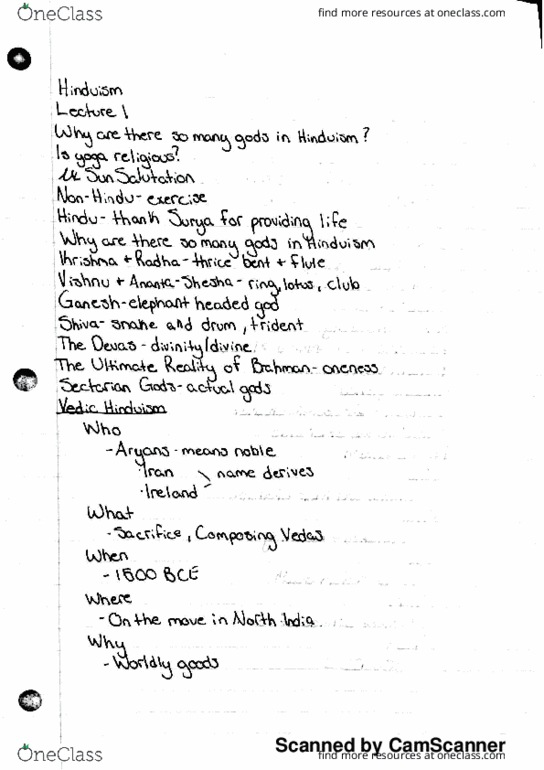 OneClass find more resources at oneclass.com
Hinduism
Lecture 1
Why are there so many gods in Hinduism?
Is yoga religious?
Sun Salutation
Non-Hindu - exercise
Hindu - thank Surya for providing life
Why are there so many gods in Hinduism
Khrishna + Radha - thrice bent + flute
Vishnu + Ananta-Shesha - ring, lotus, club
Ganesh - elephant headed god
Shiva - snake and drum, trident
The Devas - divinity/divine
The Ultimate Reality of Brahman - oneness
Sectarian Gods - actual gods
Vedic Hinduism
Who
- Aryans - means noble
· Iran
name derives
· Ireland
What
- Sacrifice, Composing Vedas
When
- 1500 BCE
Where
- On the move in North India.
Why
- Worldly goods
Scanned by CamScanner
OneClass find more resources at oneclass.com